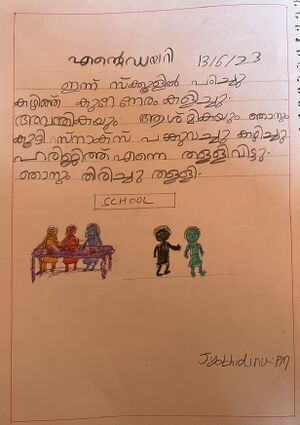 എന്റെഡയറി 13/6/23
ഇന്ന് സ്ക്കൂളിൽ പഠിച്ചു
കഴിഞ്ഞ് കുറേ നേരം കളിച്ചു.
ആശ്മികയും ഞാനും
കൂടി സ്നാക്സ് പങ്കുവച്ചു കഴിച്ചു
ഹരിജിത്ത് എന്നെ തള്ളിവിട്ടു.
ഞാനും തിരിച്ചു തള്ളി.
SCHOOL